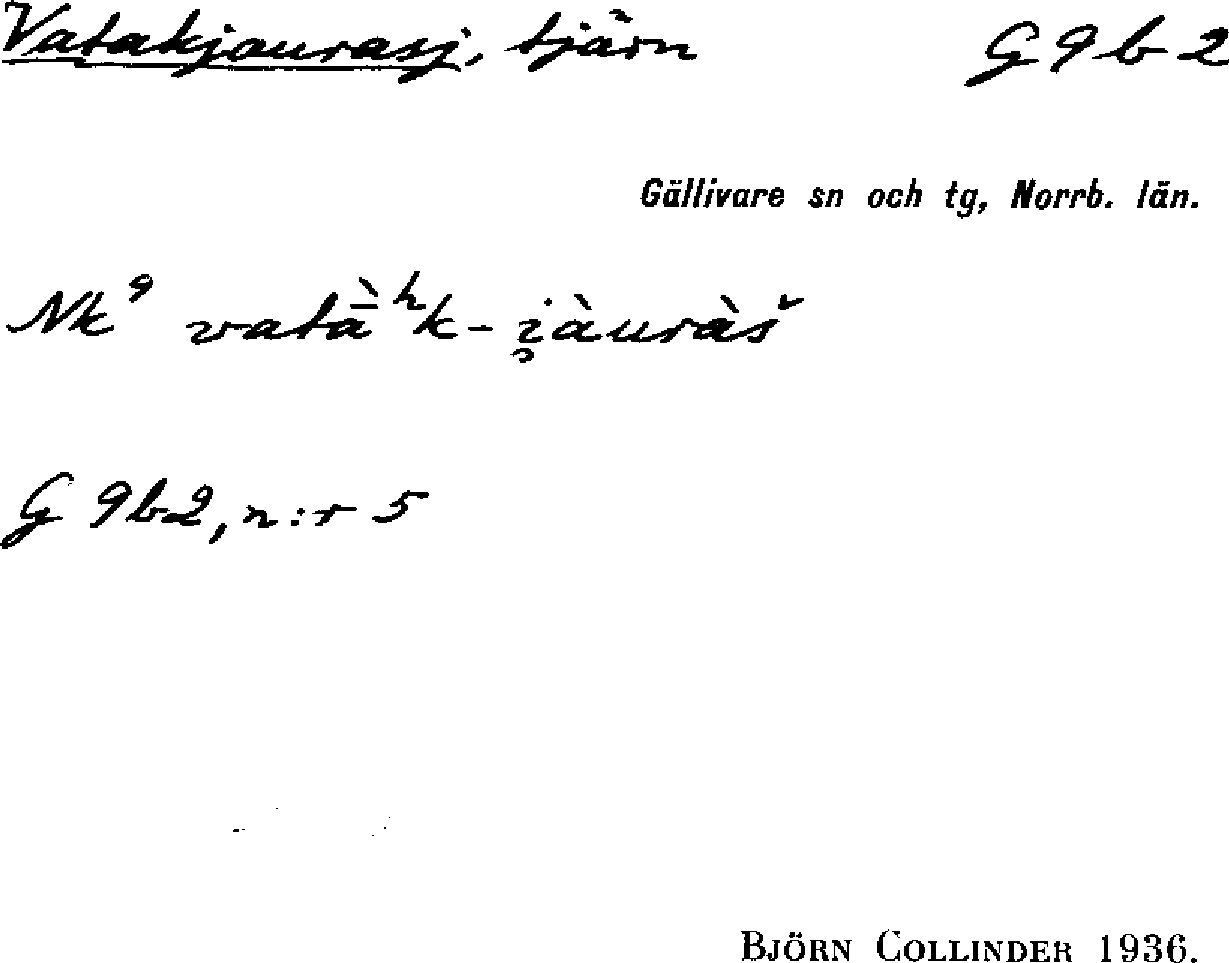 Vatakjaurasj, tjärn G 9 b 2
Gällivare sn och tg, Norrb. län.
Nk⁹ vatā̀ʰk-i̯àuràš
G 9b2, n:r 5
BJÖRN COLLINDER 1936.